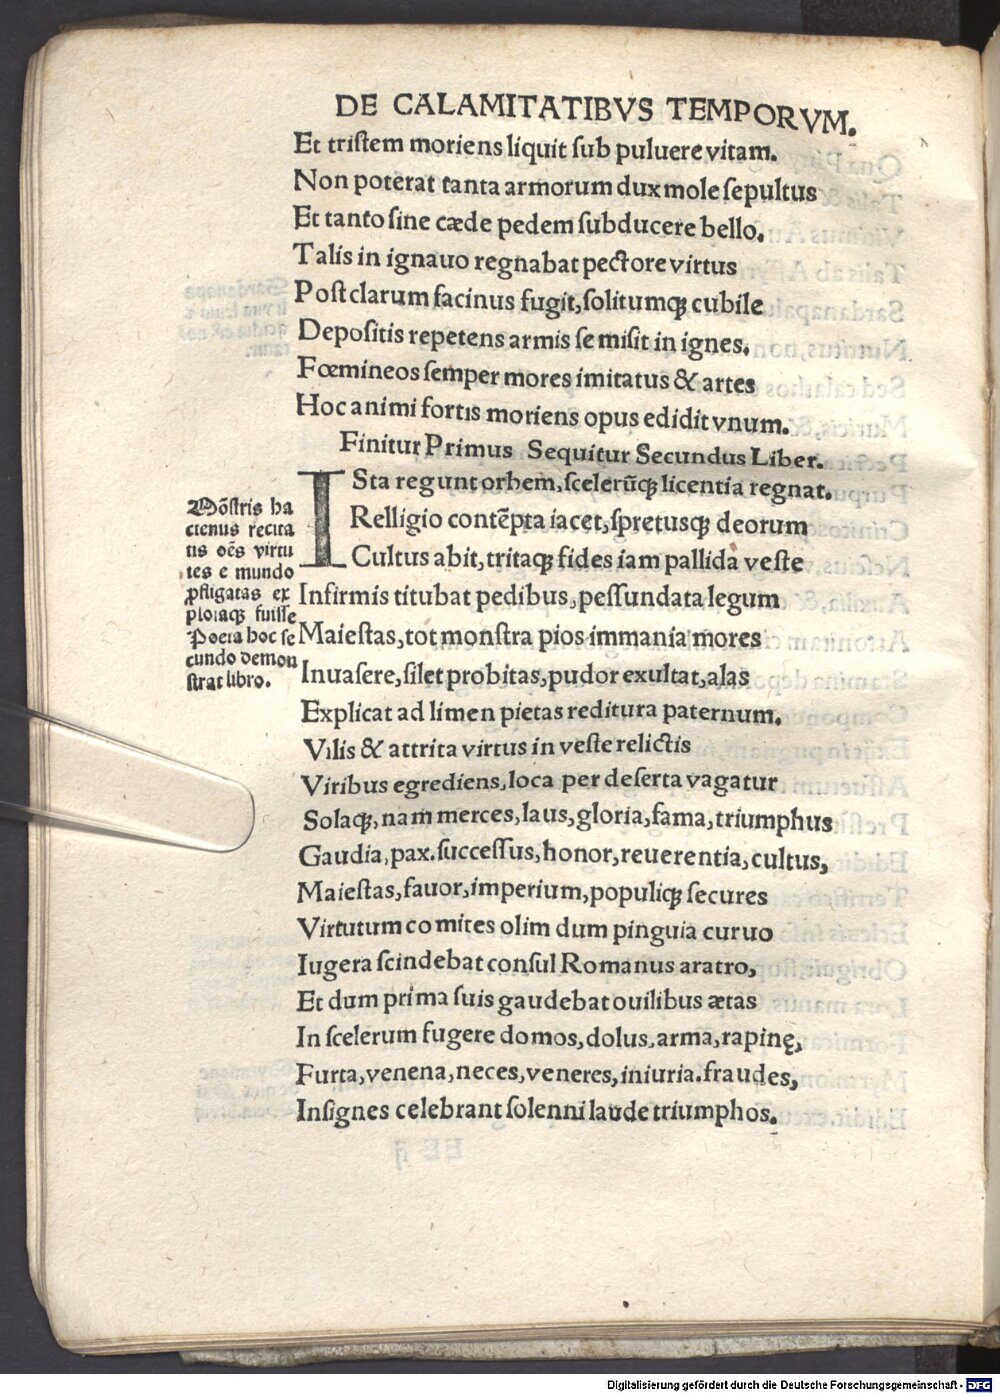 DE CALAMITATIBVS TEMPORVM.
Et tristem moriens liquit sub puluere vitam.
Non poterat tanta armorum dux mole sepultus
Et tanto sine cæde pedem subducere bello.
Talis in ignauo regnabat pectore virtus
Post clarum facinus fugit, solitumqꝫ cubile
Depositis repetens armis se misit in ignes.
Fœmineos semper mores imitatus & artes
Hoc animi fortis moriens opus edidit vnum.
Finitur Primus Sequitur Secundus Liber.
ISta regunt orbem, scelerūqꝫ licentia regnat.
Relligio contēpta iacet, spretusqꝫ deorum
Cultus abit, tritaqꝫ fides iam pallida veste
Infirmis titubat pedibus, pessundata legum
Maiestas, tot monstra pios immania mores
Inuasere, silet probitas, pudor exultat, alas
Explicat ad limen pietas reditura paternum.
Vilis & attrita virtus in veste relictis
Viribus egrediens, loca per deserta vagatur
Solaqꝫ, nam merces, laus, gloria, fama, triumphus
Gaudia, pax. successus, honor, reuerentia, cultus,
Maiestas, fauor, imperium, populiqꝫ secures
Virtutum comites olim dum pinguia curuo
Iugera scindebat consul Romanus aratro,
Et dum prima suis gaudebat ouilibus ætas
In scelerum fugere domos, dolus, arma, rapinę,
Furta, venena, neces, veneres, iniuria. fraudes,
Insignes celebrant solenni laude triumphos.
Mōstris ha
ctenus recita
tis oēs virtu
tes e mundo
ꝓfligatas ex
plosaqꝫ fuisse
Poeta hoc se
cundo demon
strat libro.
Digitalisierung gefördert durch die Deutsche Forschungsgemeinschaft - DFG